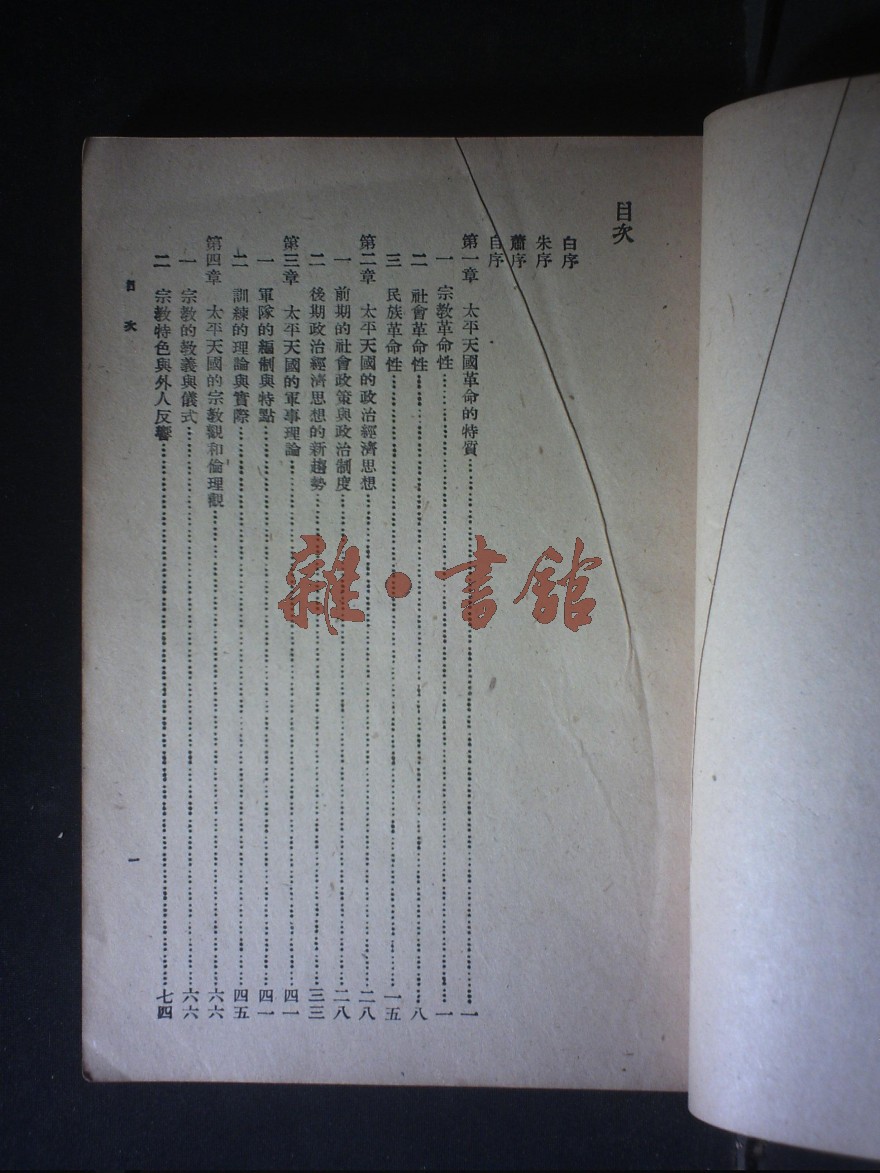 目次
白序
朱序
蕭序
自序
第一章 太平天國革命的特質……一
一 宗教革命性……一
二 社會革命性……八
三 民族革命性……一五
第二章 太平天國的政治經濟思想……二八
一 前期的社會政策與政治制度……二八
二 後期政治經濟思想的新趨勢……三三
第三章 太平天國的軍事理論……四一
一 軍隊的編制與特點……四一
二 訓練的理論與實際……四五
第四章 太平天國的宗教觀和倫理觀……六六
一 宗教的教義與儀式……六六
二 宗教特色與外人反響……七四
目次
一
雜·書館